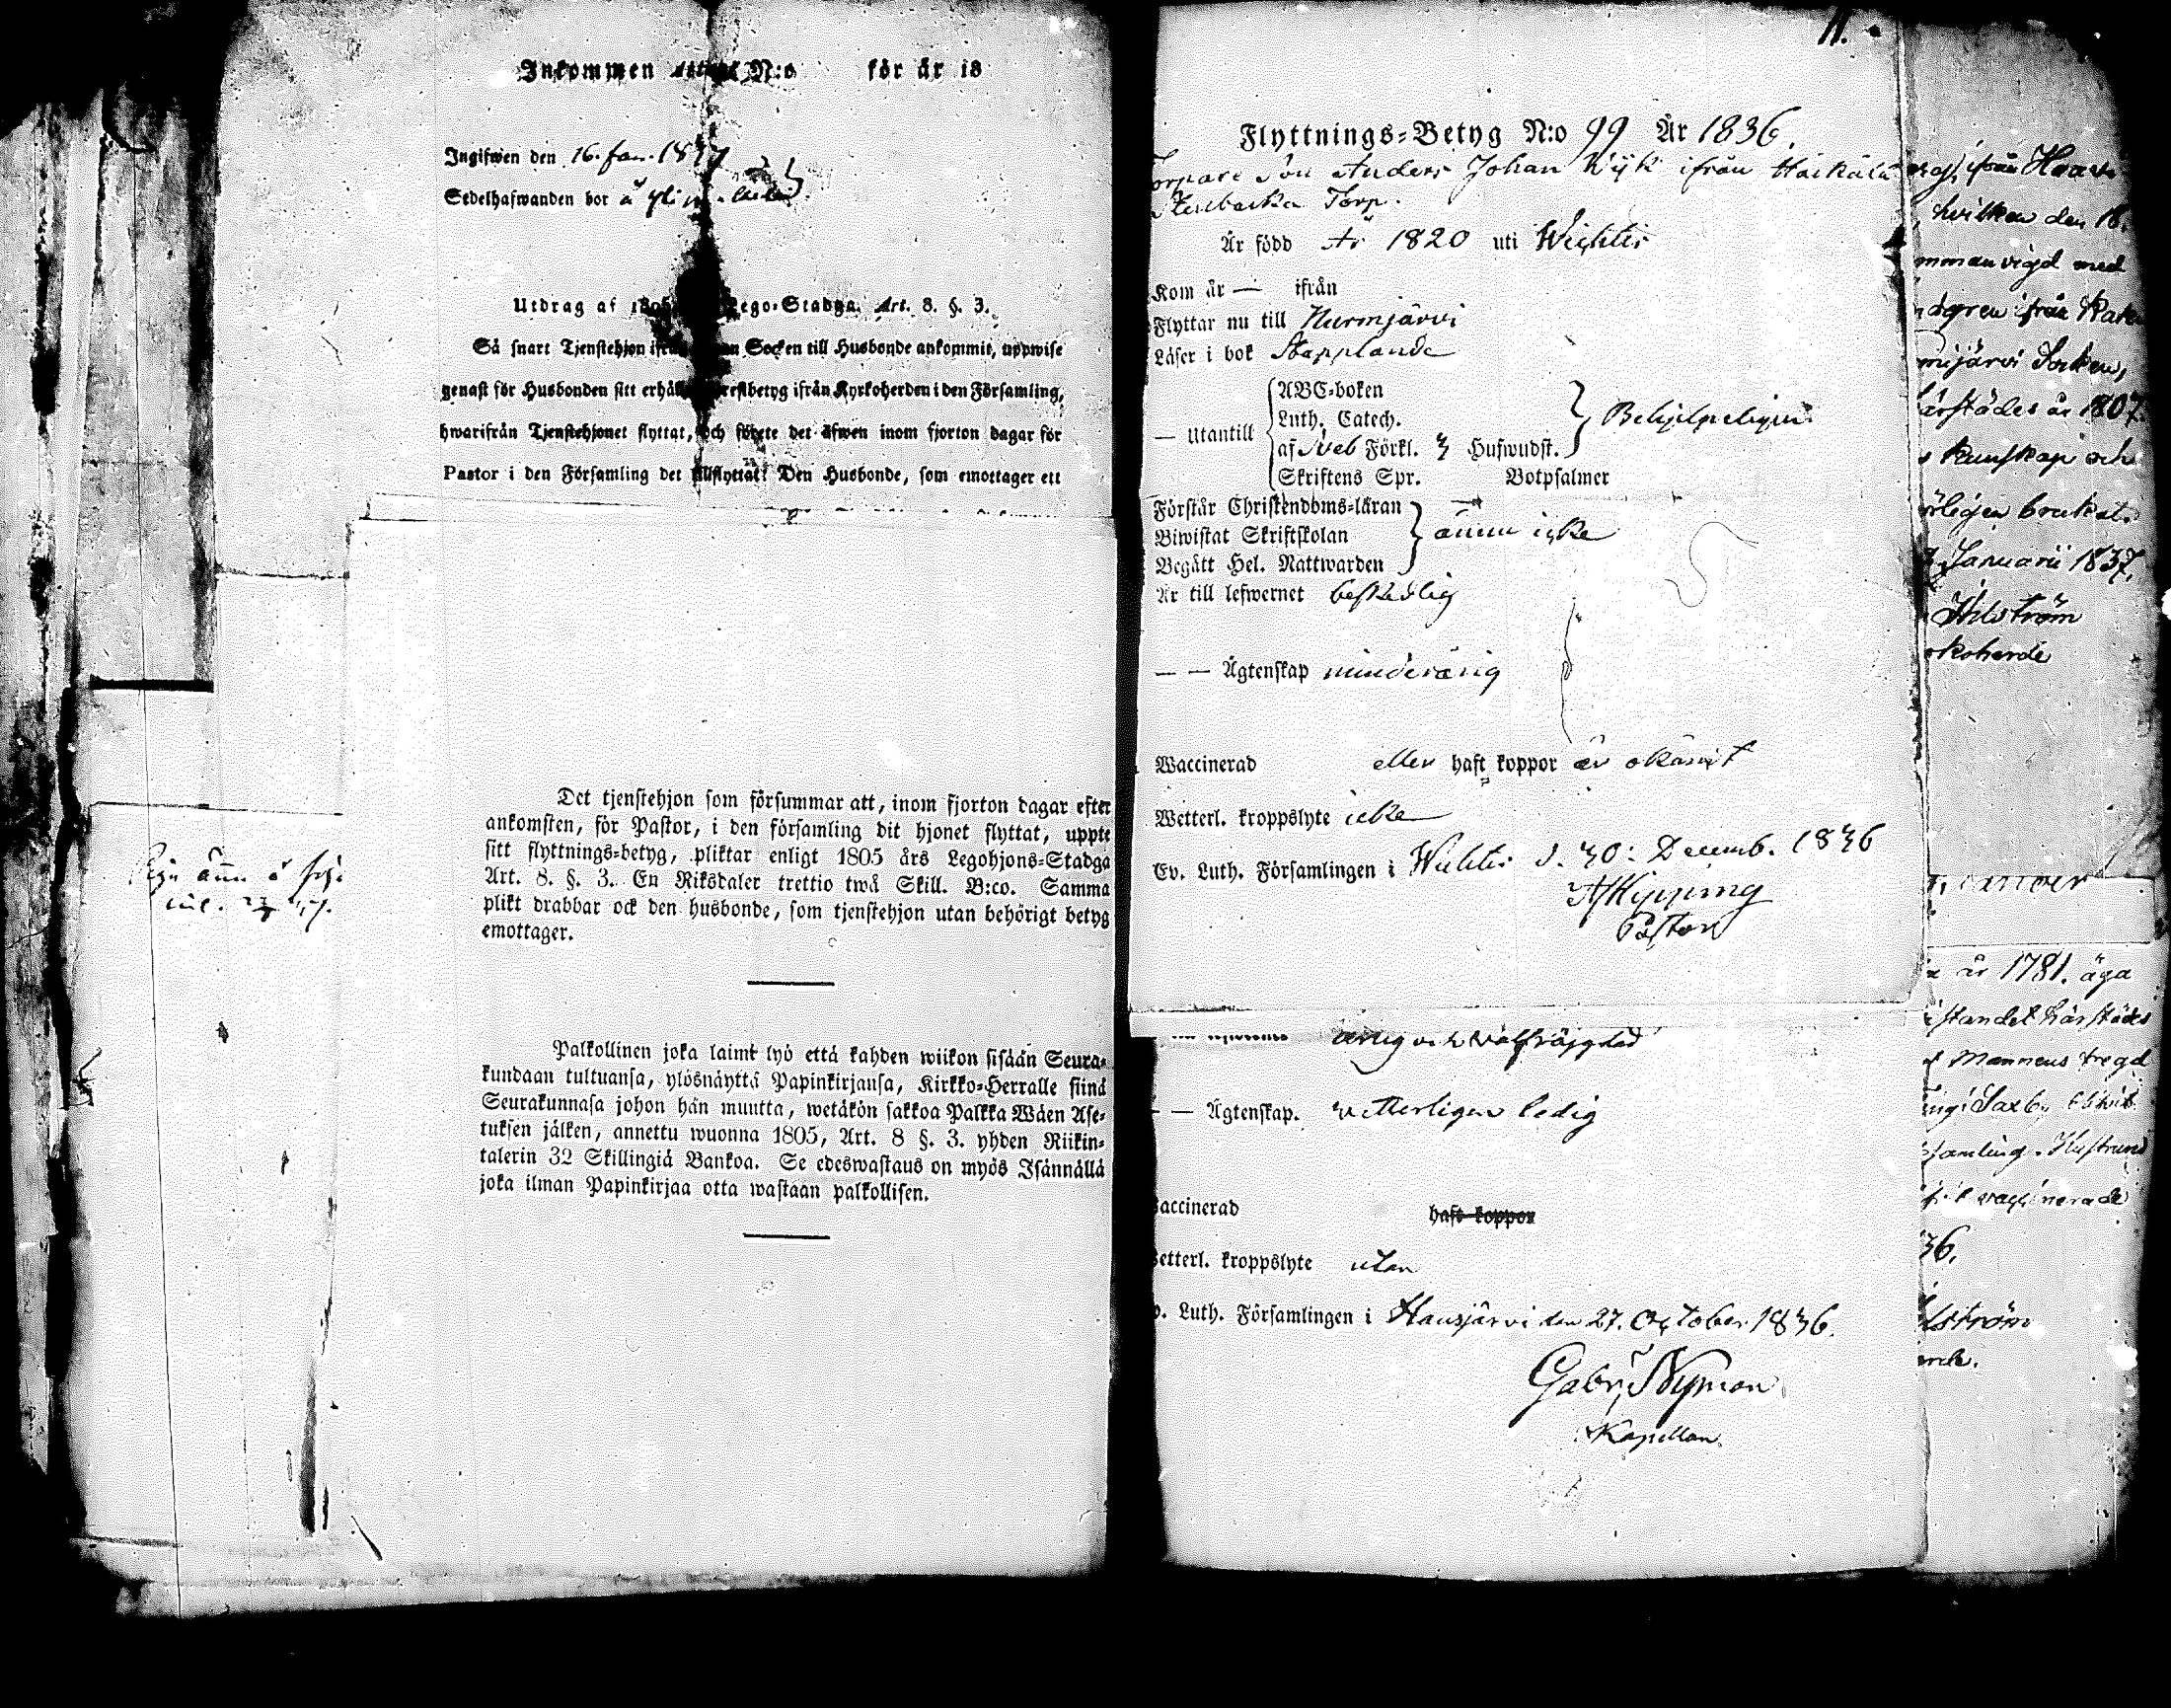 Inkommen N:o för år 18
Ingifwen den 16. Jan. 1837
Sedelhafwanden bor å
Utdrag af Lego-Stadga. Art. 8. §. 3.
Så snart Tjenstehjon Socken till Husbonde ankommit, uppwise
genast för Husbonden sitt betyg ifrån Kyrkoherden i den Församling,
hwarifrån Tjenstehjonet flyttat, och förete det äfwen inom fjorton dagar för
Pastor i den Församling det tillflyttat. Den Husbonde, som emottager ett
Det tjenstehjon som försummar att, inom fjorton dagar efter
ankomsten, för Pastor, i den församling dit hjonet flyttat, uppte
sitt flyttnings-betyg, pliktar enligt 1805 års Legohjons-Stadga
Art. 8. §. 3. En Riksdaler trettio twå Skill. B:co. Samma
plikt drabbar ock den husbonde, som tjenstehjon utan behörigt betyg
emottager.
Palkollinen joka laimi lyö että kahden wiikon sisään Seura-
kundaan tultuansa, ylösnäyttä Papinkirjansa, Kirkko-Herralle siinä
Seurakunnasa johon hän muutta, wetäkön sakkoa Palkka Wäen Ase-
tuksen jälken, annettu wuonna 1805, Art. 8 §. 3. yhden Riikin-
talerin 32 Skillingiä Bankoa. Se edeswastaus on myös Isännällä
joka ilman Papinkirjaa otta wastaan palkollisen.
11.
Flyttnings-Betyg N:o 99 År 1836.
Torpare Son Anders Johan Wijk ifrån
Stenbacka Torp.
Är född År 1820 uti Wichtis
Kom år — ifrån
Flyttar nu till Nurmjärvi
Läser i bok Stapplande
— Utantill
ABC-boken
Luth. Catech.
af Sveb Förkl. 3 Hufwudst.
Skriftens Spr. Botpsalmer
Behjelpeligen
Förstår Christendoms-läran
Biwistat Skriftskolan
Begått Hel. Nattwarden
ännu icke
Är till lefwernet beskedlig
— — Ägtenskap minderårig
Waccinerad eller haft koppor är okänt
Wetterl. kroppslyte icke
Ev. Luth. Församlingen i Wichtis d. 30: Decemb. 1836
A Hipping
Pastor
ärlig och wälfräjgdad
— — Ägtenskap. vetterligen ledig
accinerad haft koppor
etterl. kroppslyte utan
. Luth. Församlingen i Hausjärvi den 27. October 1836.
Gabr. Nyman
Kapellan.
ifrån
hvilken den 16.
mman vigd med
dgren ifrån
mijärvi Socken,
ärstädes år 1807.
kunskap och
rligen brukat.
Januarii 1837.
Ahlström
rkoherde
år 1781. äga
ståndet härstädes
Mannens fregd
samling. Hustrun
vaccinerade
36.
lström
erde.